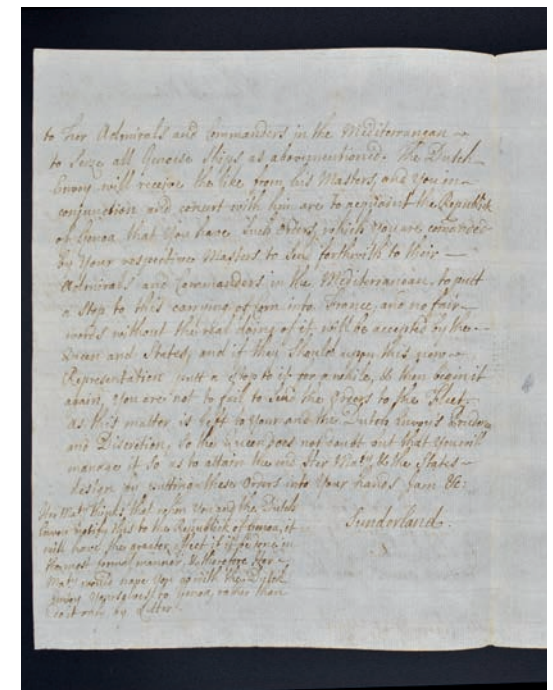 to Her Admirals and Commanders in the Mediterranean
to Seize all Genoese Ships as abovementioned. The Dutch
Envoy will receive the like from his Masters, and you in
conjunction and concert with him are to acquaint the Republick
of Genoa that you have such Orders, which you are
by your respective Masters to send forthwith to their
Admirals and Commanders in the Mediterranean, to putt
a stop to this carrying of Corn into France, and no fair
words without the real doing of it will be accepted by the
Queen and States, and if they should upon this
Representation putt a stop to it for a while, & then begin it
again, you are not to fail to send the Orders to the Fleet
as this matter is left to your and the Dutch Envoy's
and Discretion, so the Queen does not doubt but that you will
manage it so as to attain the end Her Maty & the States
design by putting these Orders into your hands. I am &c:
Sunderland.
Her Maty thinks that when you and the Dutch
Envoy notify this to the Republick of Genoa, it
will have the greater effect if it be done in
the most formal manner, & therefore Her
Maty would have you go with the Dutch
Envoy yourselves to Genoa, rather than
do it only by Letter.